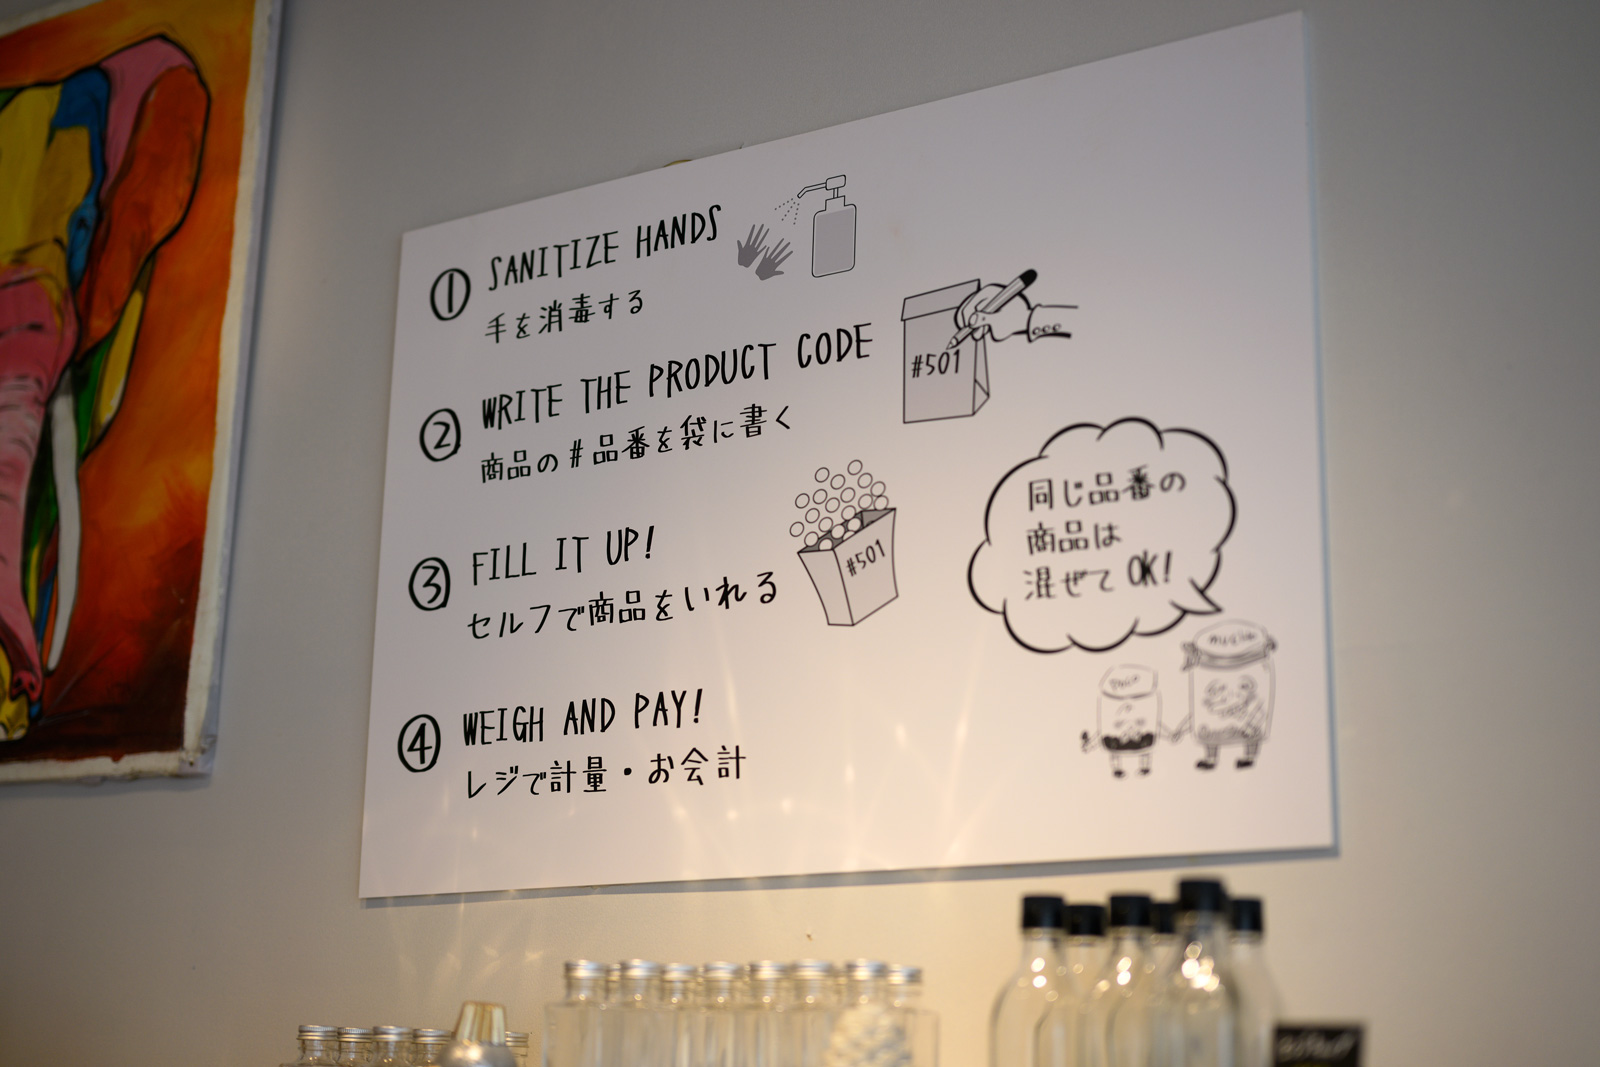 ① SANITIZE HANDS
手を消毒する
② WRITE THE PRODUCT CODE
商品の#品番を袋に書く
#501
③ FILL IT UP!
セルフで商品をいれる
#501
④ WEIGH AND PAY!
レジで計量・お会計
同じ品番の
商品は
混ぜてOK!